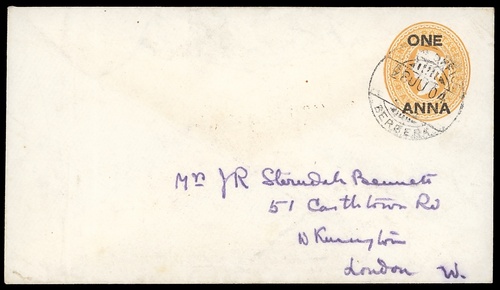 ONE
ANNA
BERBERA
Mrs JR Sterndale Bennett
51 Castletown Rd
W Kensington
London W.